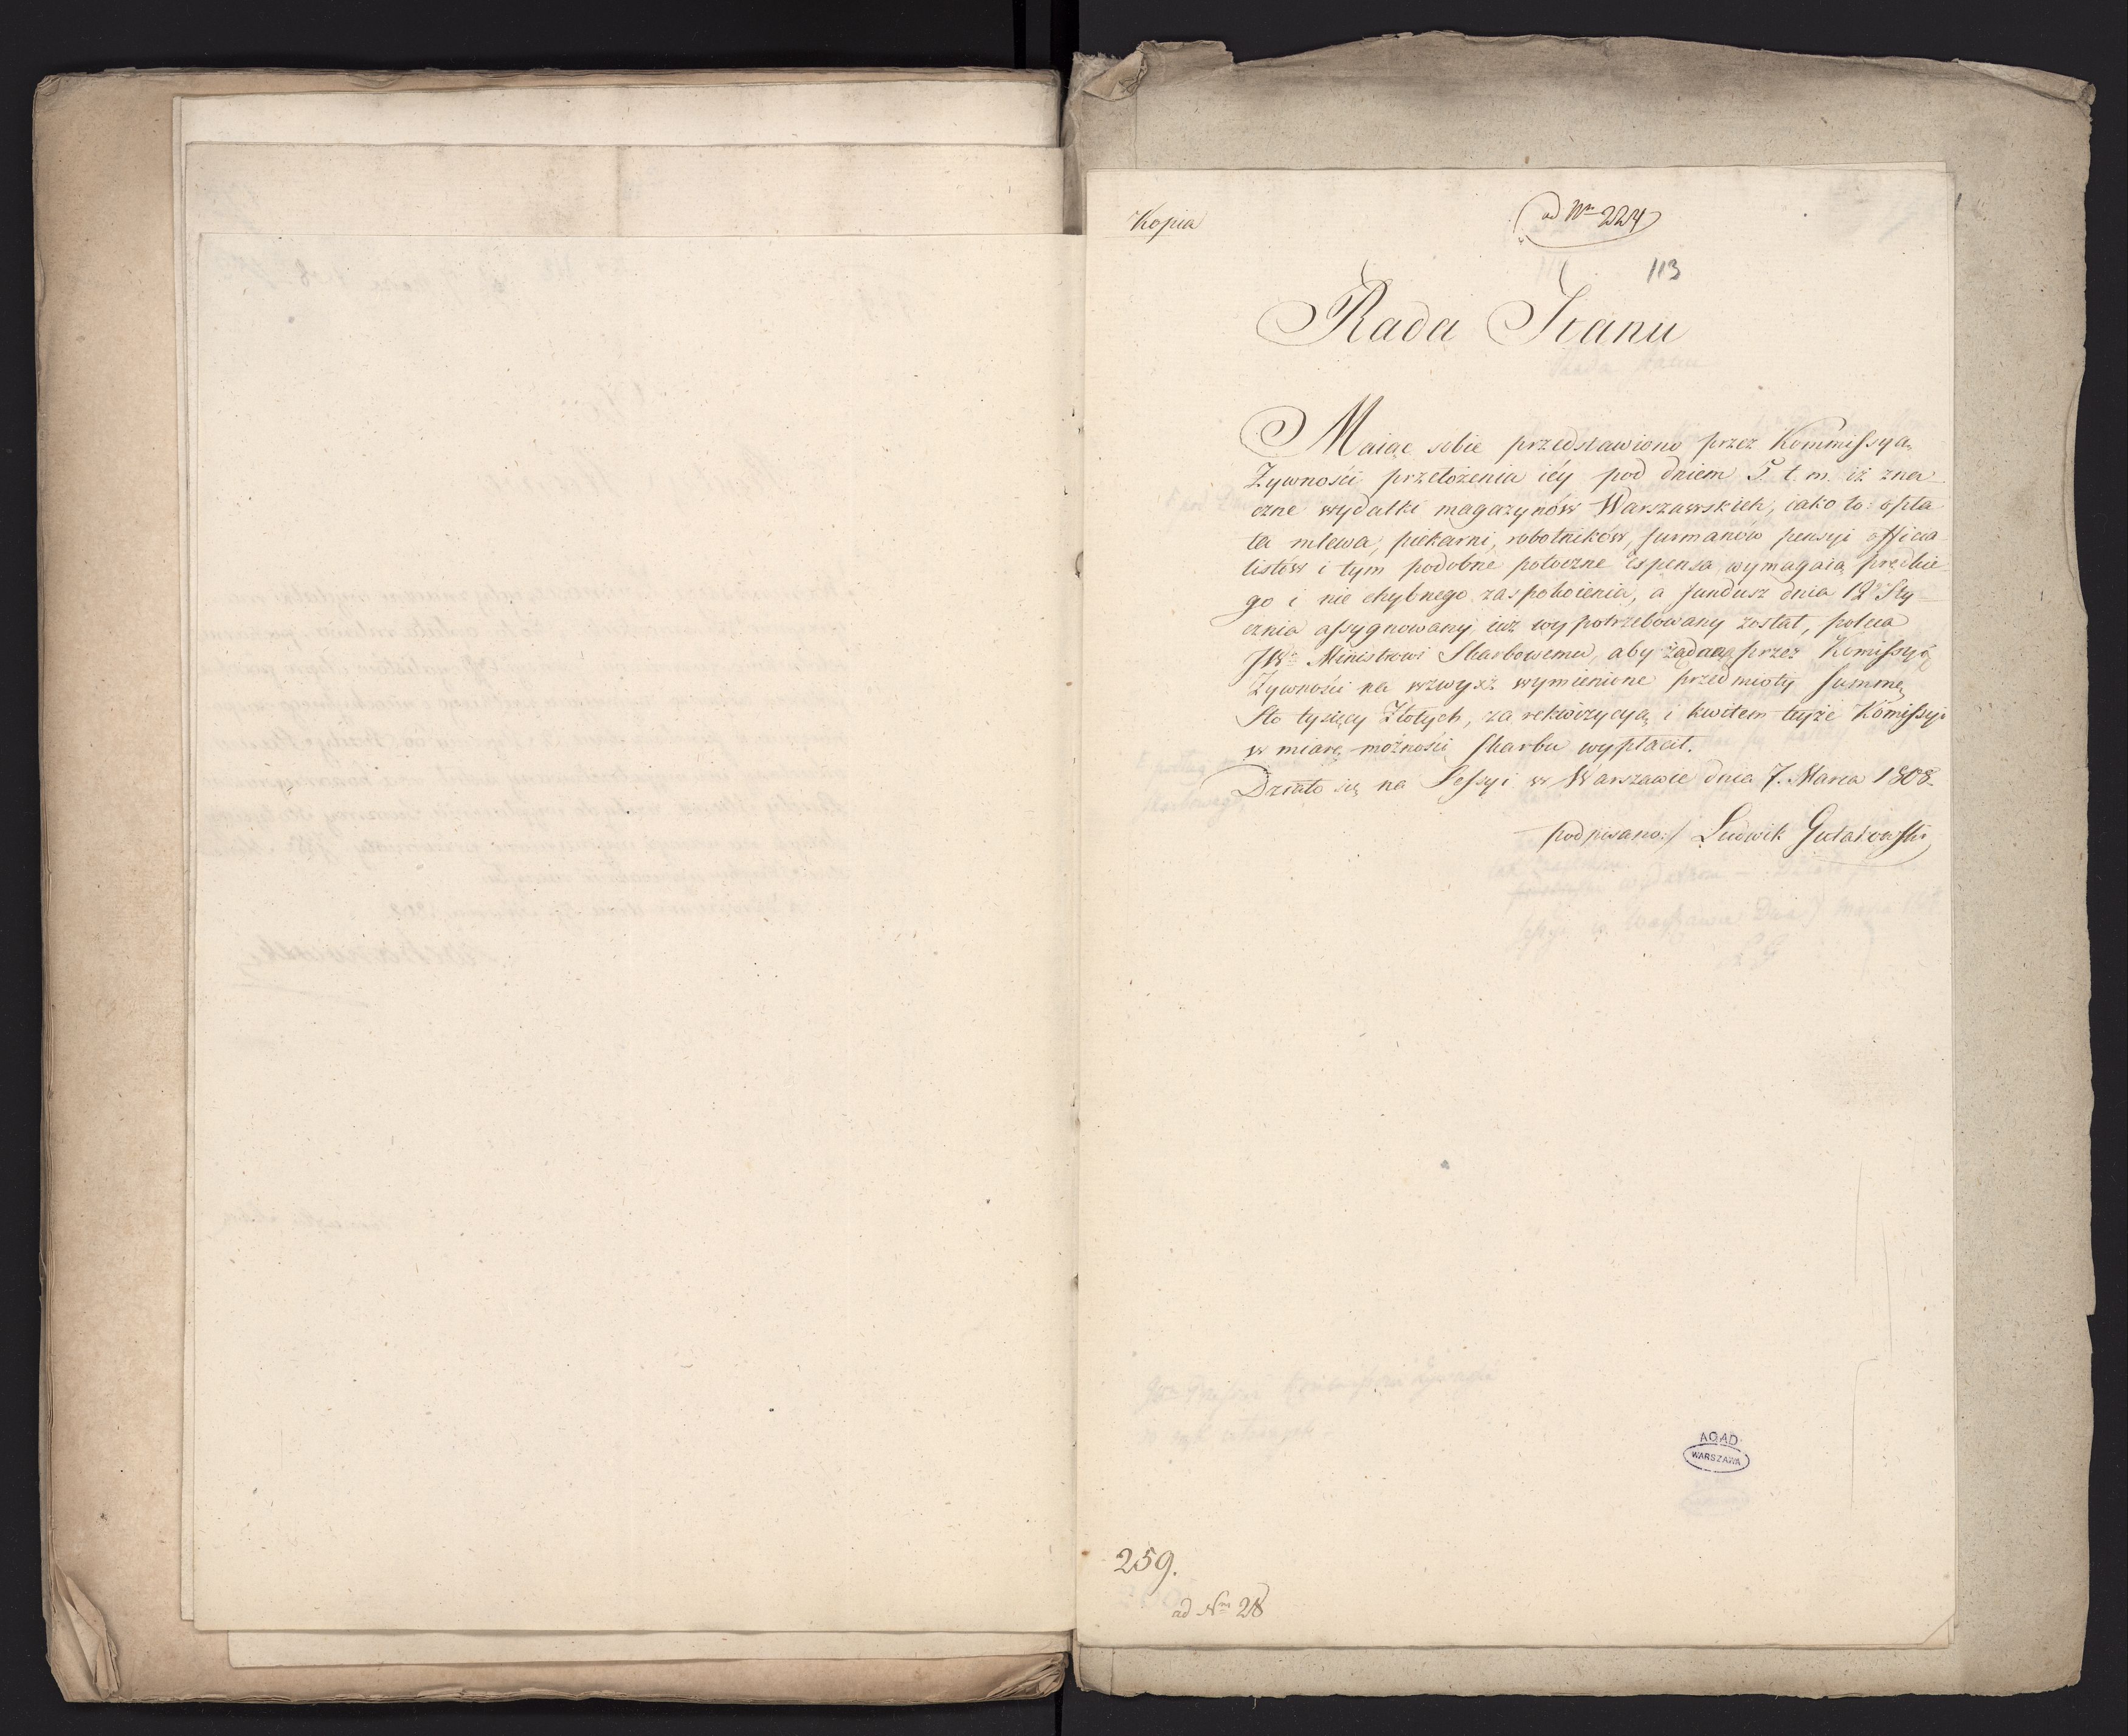 Kopia
ad Nrm 224
113
Rada Stanu
Maiąc sobie przedstawiono przez Kommissyą
Żywności przełożenia iéy pod dniem 5 t. m. iż zna
czne wydatki magazynów Warszawskich, iako to: opła
ta mlewa, piekarni, robotników, furmanów pensyi officia
listów i tym podobne potoczne expensa, wymagaią prędkie
go i nie chybnego zaspokoienia, a fundusz dnia 12 Sty
cznia assygnowany, iuż wypotrzebowany został, poleca
JWu Ministrowi Skarbowemu, aby żądaną przez Komissyą
Żywności na wzwyżż wymienione przedmioty summę
Sto tysięcy Złotych, za rekwizycyą i kwitem teyże Komissyi
w miarę możności skarbu wypłacił.
Działo się na Sessyi w Warszawie dnia 7. Marca 1808.
podpisano:/ Ludwik Gutakowski
AGAD
WARSZAWA
259.
ad Nrm 28